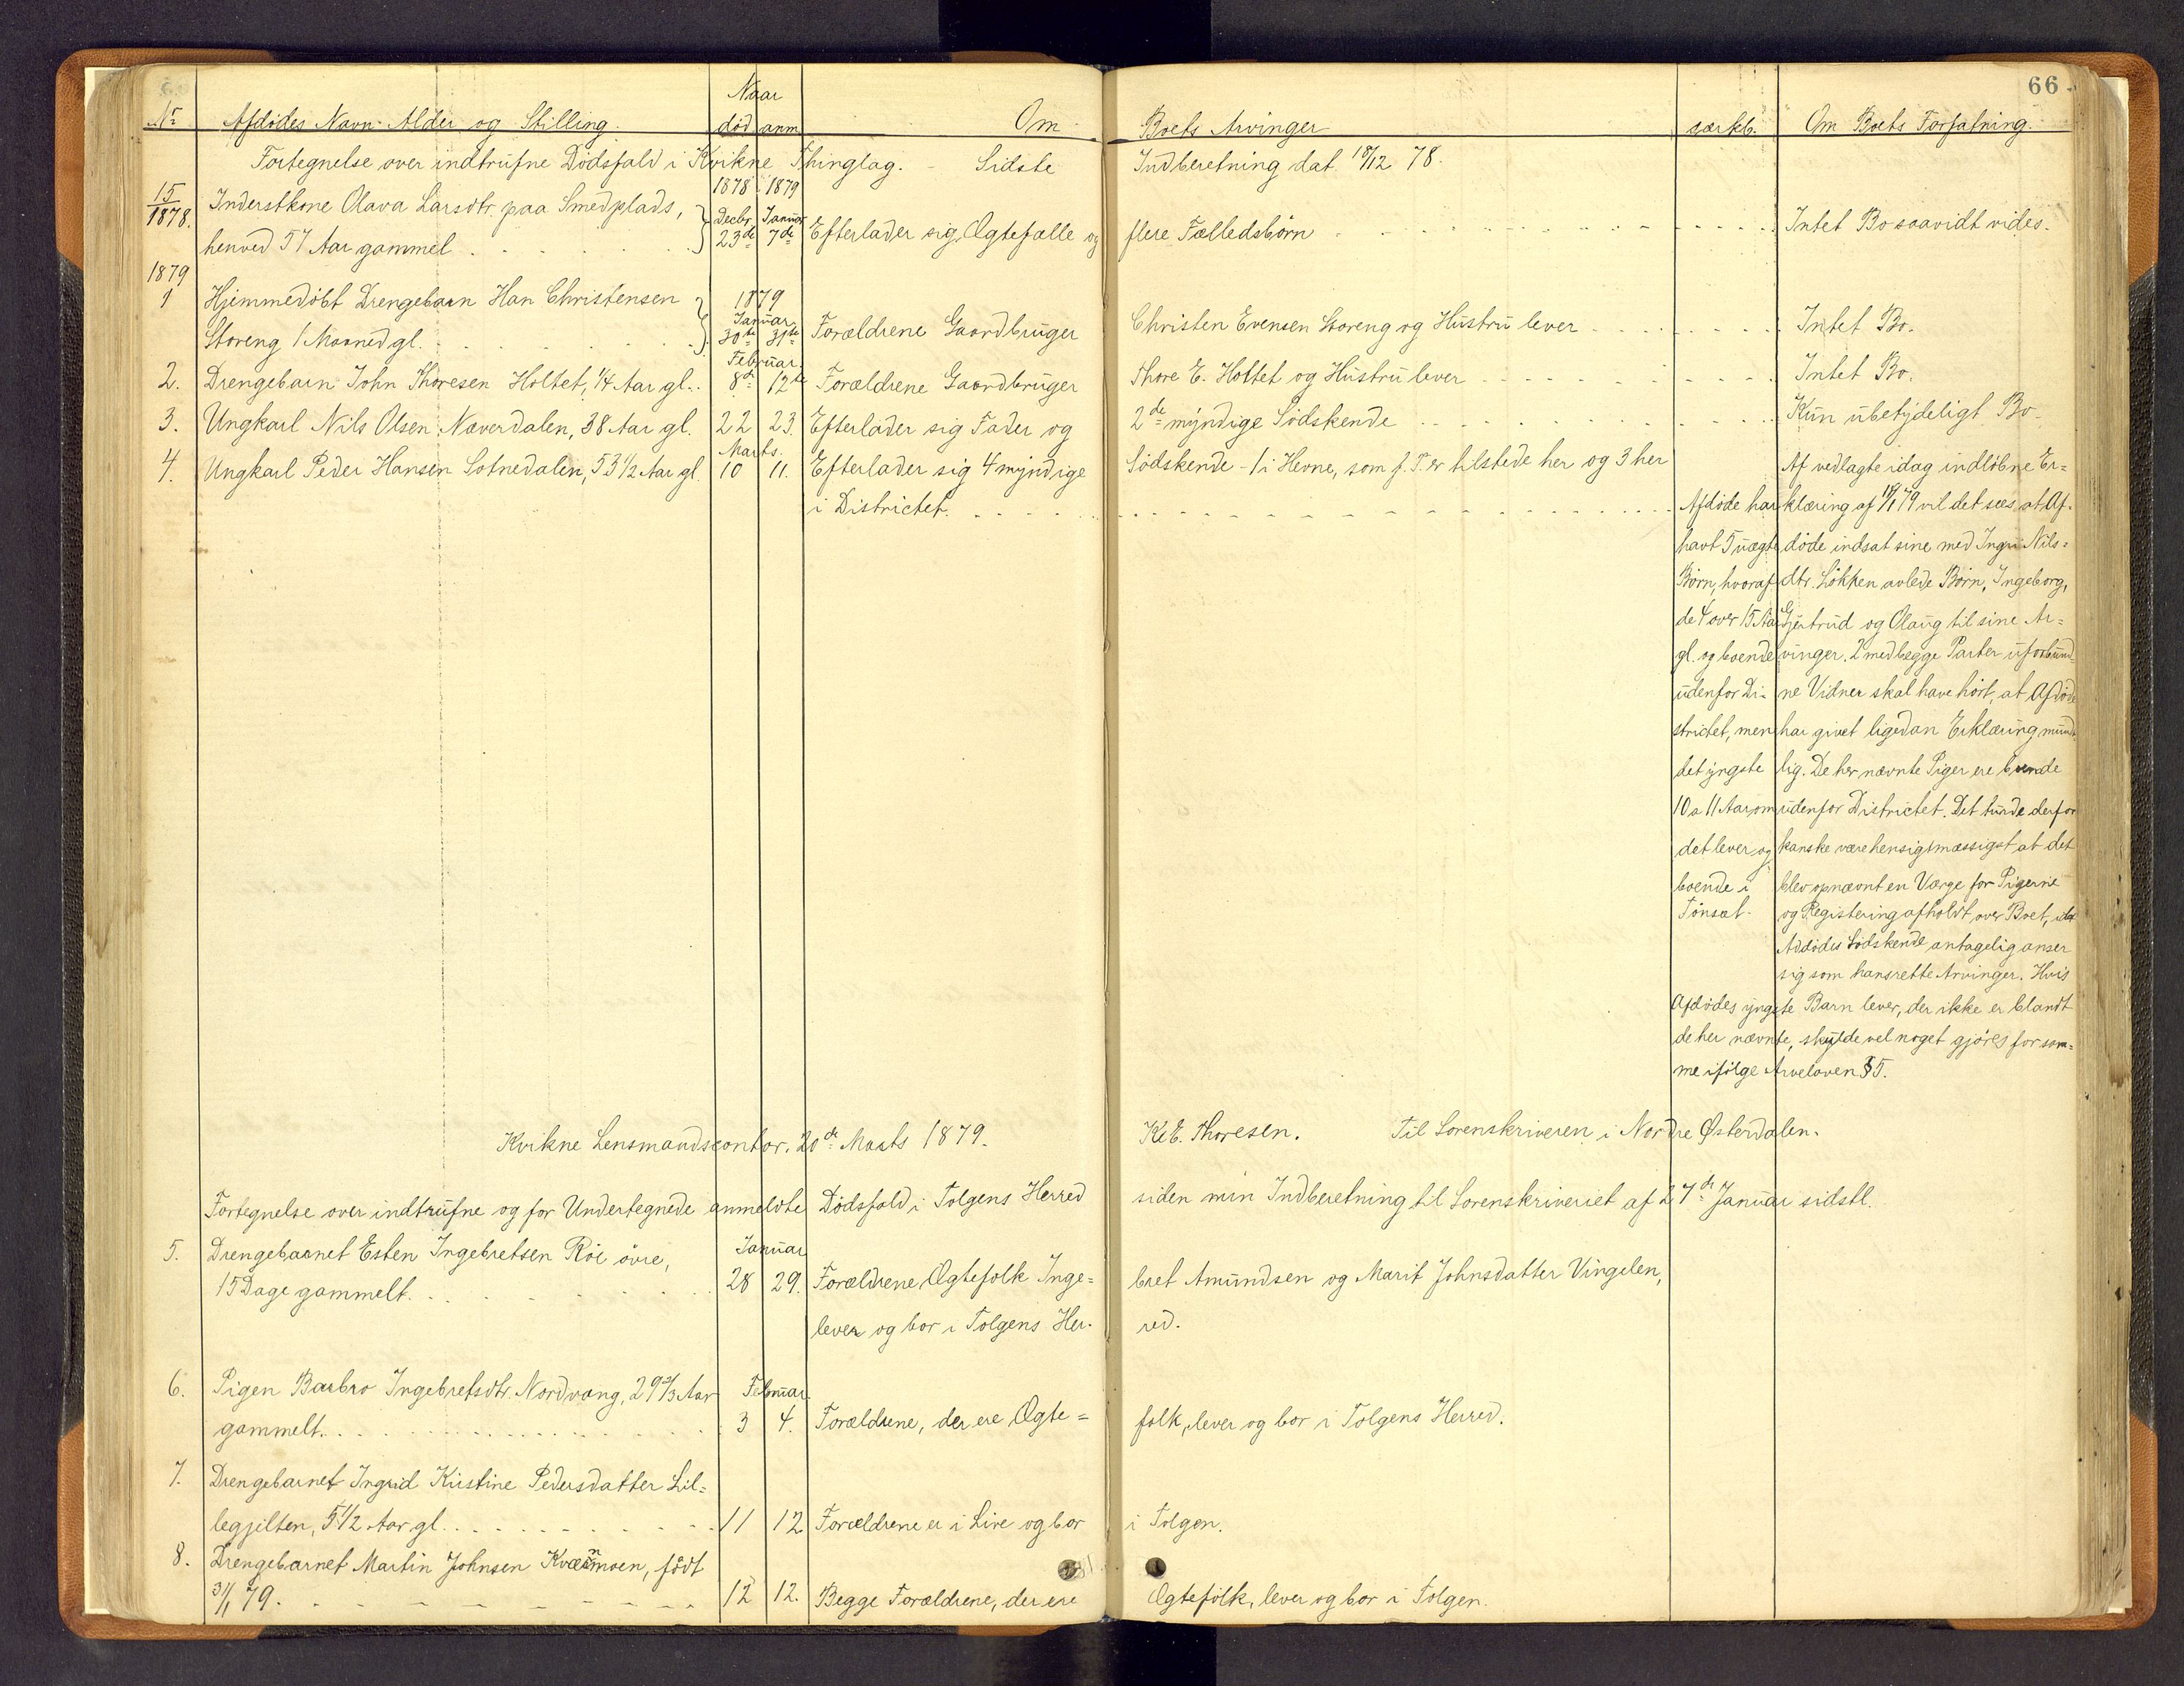 66.
Naar
No Afdødes Navn Alder og Stilling. død anm Om Boets Arvinger særkb. Om Boets Forfatning.
Fortegnelse over indtrufne Dødsfald i Kvikne Thinglag. - Sidste Indberetning dat. 18/12 78.
1878 1879
15/1878. Inderstkone Olava Larsdtr. paa Smedplads, Decbr Januar
henved 57 Aar gammel 23de 7de Efterlader sig Ægtefælle og flere Fælledsbørn Intet Bo saavidt vides.
1879
1 Hjemmedøbt Drengebarn Han Christensen 1879 Januar
Storeng 1 Maaned gl. 30te 31te Forældrene Gaardbruger Christen Evensen Storeng og Hustru lever Intet Bo.
Februar
2. Drengebarn John Thoresen Holtet, 1/4 Aar gl. 8de 12te Forældrene Gaardbruger Thore E. Holtet og Hustru lever Intet Bo.
3. Ungkarl Nils Olsen Næverdalen, 38 Aar gl. 22 23. Efterlader sig Fader og 2de myndige Södskende Kun ubetydeligt Bo.
Marts.
4. Ungkarl Peder Hansen Sotnedalen, 53 1/2 Aar gl. 10 11. Efterlader sig 4 myndige Södskende - 1 i Hevne, som f. T. er tilstede her og 3 her
i Districtet.
Afdøde har
havt 5 uægte
Börn, hvoraf
de 4 over 15 Aar
gl. og boende
udenfor Di-
strictet, men
det yngste
10 a 11 Aar, om
det lever og
boende i
Tönset.
Af vedlagte idag indlöbne Er=
klæring af 19/1 79 vil det sees, at Af-
döde indsat sine med Ingri Nils=
dtr. Lökken avlede Börn, Ingeborg,
Gjertrud og Olaug til sine Ar=
vinger. 2 med begge Parter uforbund-
ne Vidner skal have hört, at Afdöde
har givet ligedan Erklæring mund-
lig. De her nævnte Piger ere boende
udenfor Districtet. Det turde derfor
kanske være hensigtmæssigst at det
blev opnævnt en Værge for Pigerne
og Registering afholdt over Boet, da
Afdödes Södskende antagelig anser
sig som hans rette Arvinger. Hvis
Afdödes yngste Barn lever, der ikke er blandt
de her nævnte, skulde vel noget gjöres for sam=
me ifölge Arveloven § 5.
Kvikne Lensmandscontor. 20de Marts 1879. K. E. Thoresen. Til Sorenskriveren i Nordre Østerdalen.
Fortegnelse over indtrufne og for Undertegnede anmeldte Dödsfald i Tolgens Herred siden min Indberetning til Sorenskriveriet af 27de Januar sidstl.
5. Drengebarnet Esten Ingebretsen Röe övre, Januar
15 Dage gammelt. 28 29. Forældrene, Ægtefolk Inge= bret Amundsen og Marit Johnsdatter Vingelen,
lever og bor i Tolgens Her- red.
6. Pigen Barbro Ingebretsdtr. Nordvang, 29 2/3 Aar Februar
gammelt. 3 4. Forældrene, der ere Ægte= folk, lever og bor i Tolgens Herred.
7. Drengebarnet Ingrid Kirstine Pedersdatter Lil=
legjelten, 5 1/2 Aar gl. 11 12 Forældrene er i Live og bor i Tolgen.
8. Drengebarnet Martin Johnsen Kværnmoen, födt
31/1 79. 12 12. Begge Forældrene, der ere Ægtefolk, lever og bor i Tolgen.